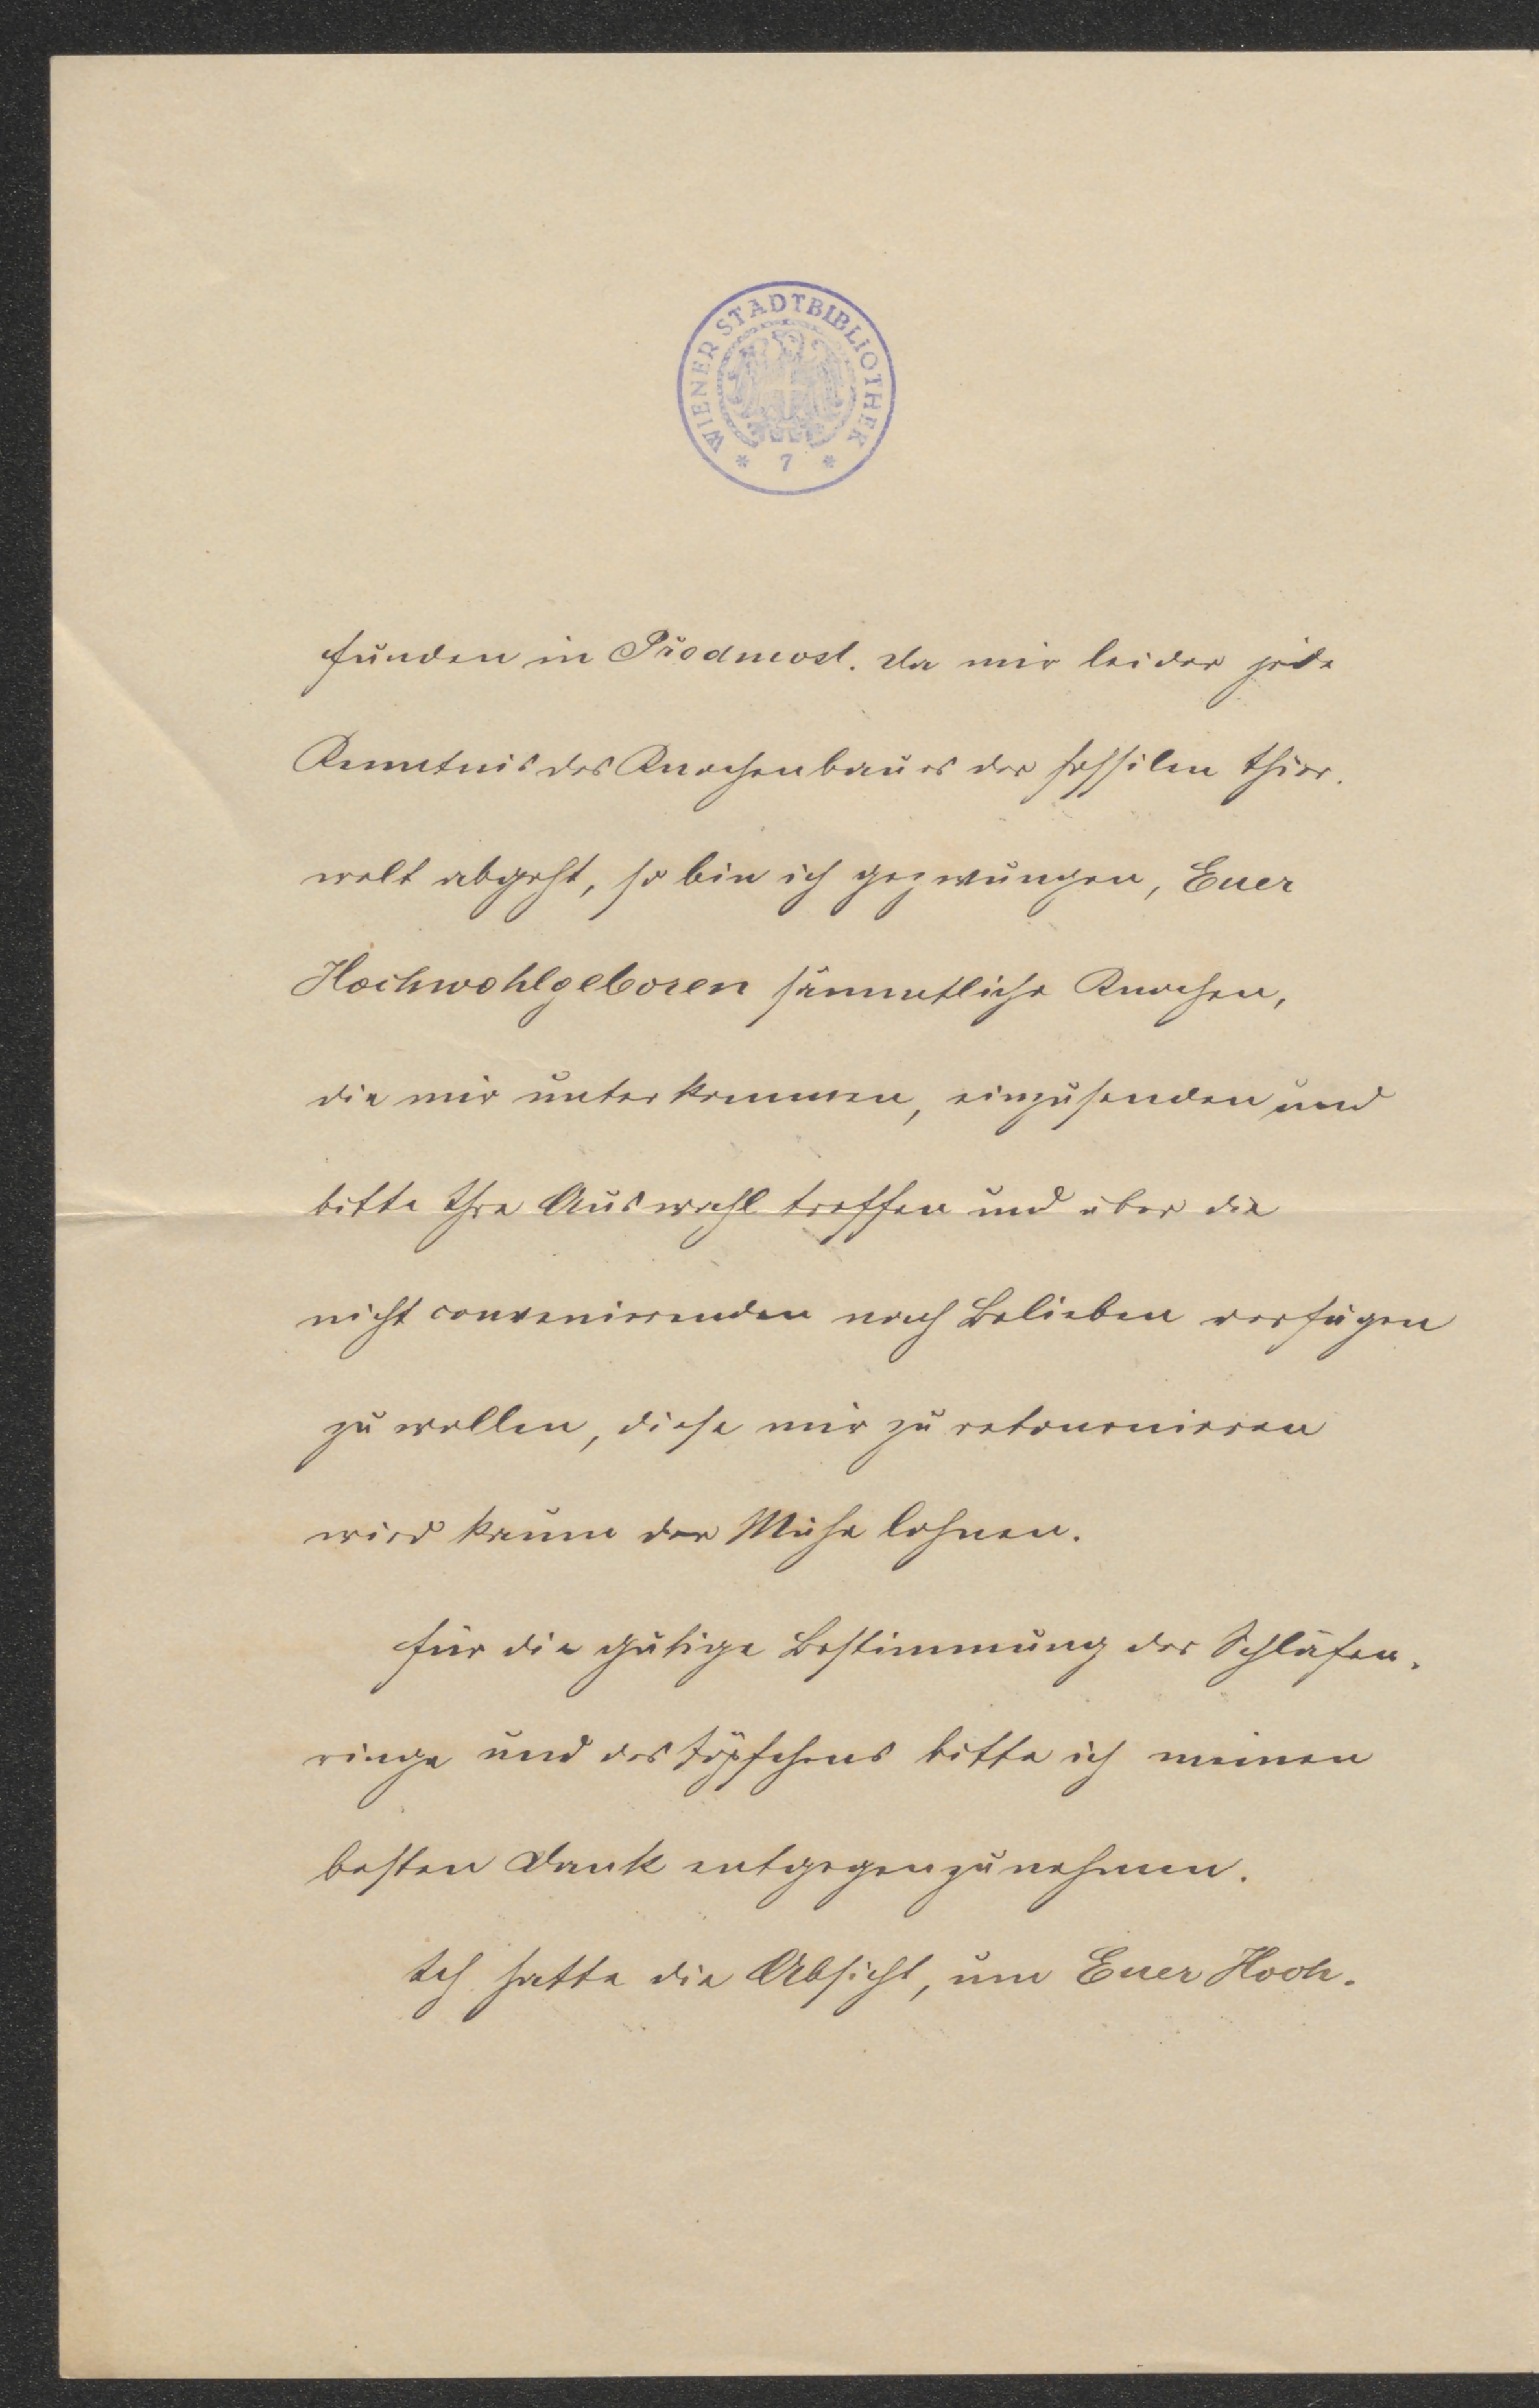 WIENER STADTBIBLIOTHEK
* 7 *
funden in Předmost. Da mir leider jede
Kenntnis des Knochenbaues der fossilen Thier-
welt abgeht, so bin ich gezwungen, Euer
Hochwohlgeboren sämmtliche Knochen,
die mir unterkommen, einzusenden und
bitte Ihre Auswahl treffen und über die
nicht convenierenden nach Belieben verfügen
zu wollen, diese mir zu retournieren
wird kaum der Mühe lohnen.
Für die gütige Bestimmung der Schläfen-
ringe und des Töpfchens bitte ich meinen
besten Dank entgegenzunehmen.
Ich hatte die Absicht, um Euer Hoch-